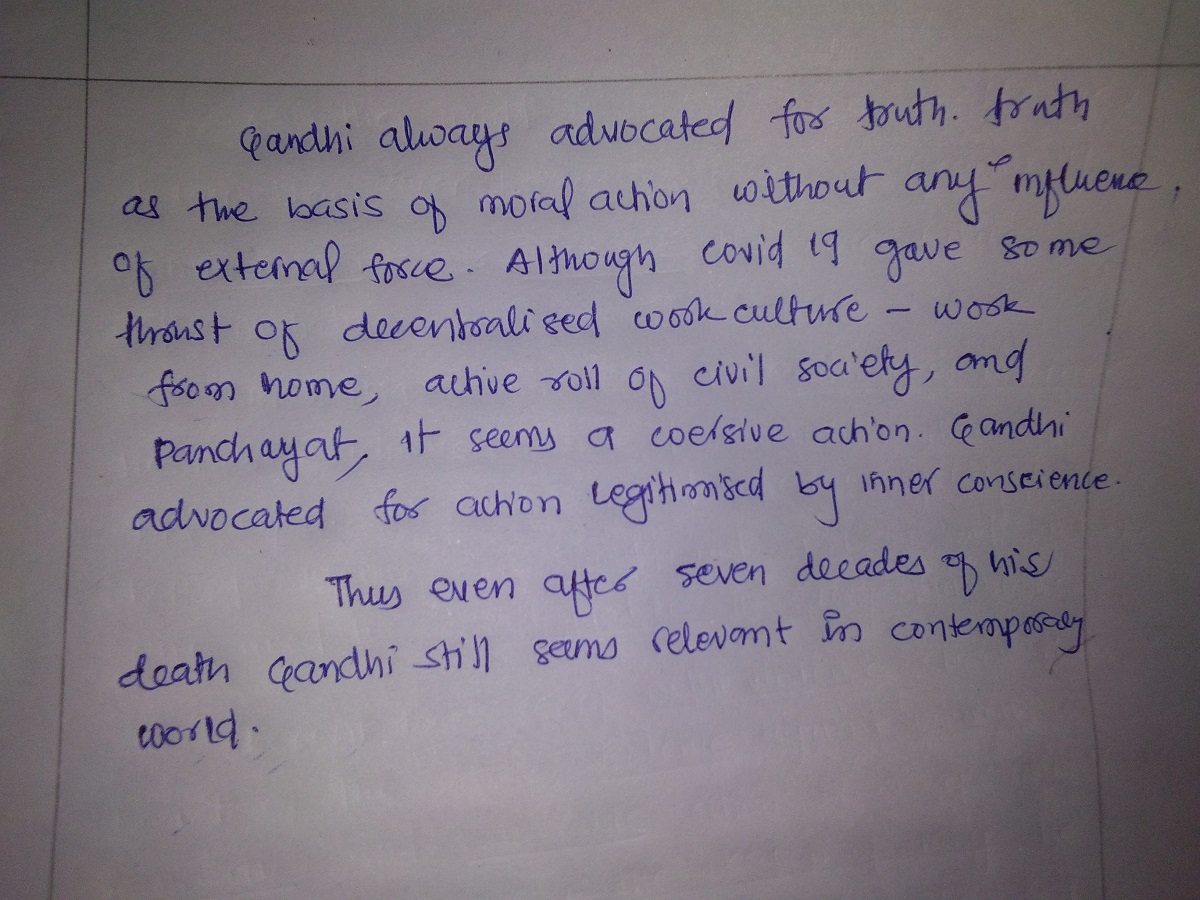 Gandhi always advocated for truth. truth
as the basis of moral action without any influence,
of external force. Although covid 19 gave some
thrust of decentralised work culture - work
from home, active roll of civil society, and
Panchayat, it seems a coersive action. Gandhi
advocated for action legitimised by inner conscience.
Thus even after seven decades of his
death Gandhi still seems relevant in contemporary
world.